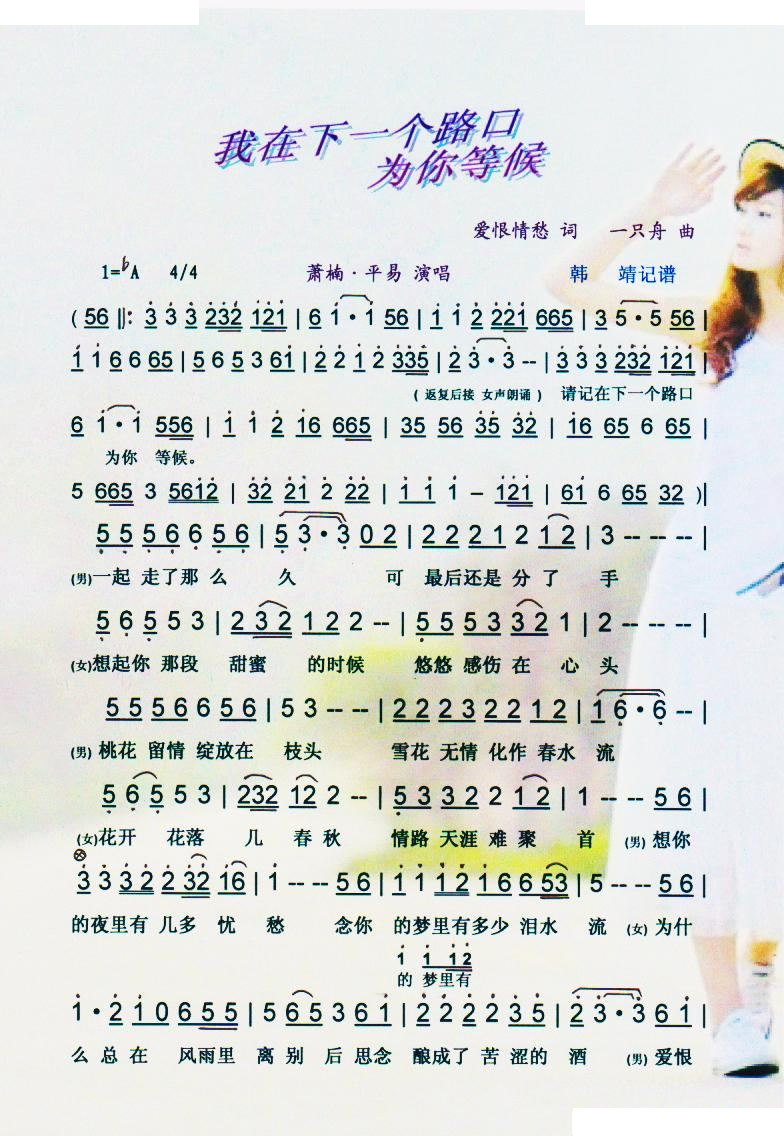 我在下一个路口
为你等候
爱恨情愁 词 一只舟 曲
1=♭A 4/4 萧楠·平易 演唱 韩 靖记谱
( 56 ‖: 3 3 3 232 121 | 6 1·1 56 | 1 1 2 221 665 | 3 5·5 56 |
1 1 6 6 65 | 5 6 5 3 61 | 2 2 1 2 335 | 2 3·3 -- | 3 3 3 232 121 |
( 返复后接 女声朗诵 ) 请记在下一个路口
6 1·1 556 | 1 1 2 16 665 | 35 56 35 32 | 16 65 6 65 |
为你 等候。
5 665 3 5612 | 32 21 2 22 | 1 1 1 - 121 | 61 6 65 32 )|
5 5 5 6 6 5 6 | 5 3·3 0 2 | 2 2 2 1 2 1 2 | 3 -- -- |
(男)一起 走了那 么 久 可 最后还是 分 了 手
5 6 5 5 3 | 2 3 2 1 2 2 -- | 5 5 5 3 3 2 1 | 2 -- -- |
(女)想起你 那段 甜蜜 的时候 悠悠 感伤 在 心 头
5 5 5 6 6 5 6 | 5 3 -- -- | 2 2 2 3 2 2 1 2 | 1 6·6 -- |
(男) 桃花 留情 绽放在 枝头 雪花 无情 化作 春水 流
5 6 5 5 3 | 232 12 2 -- | 5 3 3 2 2 1 2 | 1 -- -- 5 6 |
(女)花开 花落 几 春 秋 情路 天涯 难 聚 首 (男) 想你
3 3 3 2 2 32 16 | 1 -- -- 5 6 | 1 1 1 2 1 6 6 53 | 5 -- -- 5 6 |
的夜里有 几多 忧 愁 念你 的梦里有多少 泪水 流 (女) 为什
1 1 12
的 梦里有
1·2 1 0 6 5 5 | 5 6 5 3 6 1 | 2 2 2 2 3 5 | 2 3·3 6 1 |
么 总 在 风雨里 离 别 后 思念 酿成了 苦 涩的 酒 (男) 爱恨